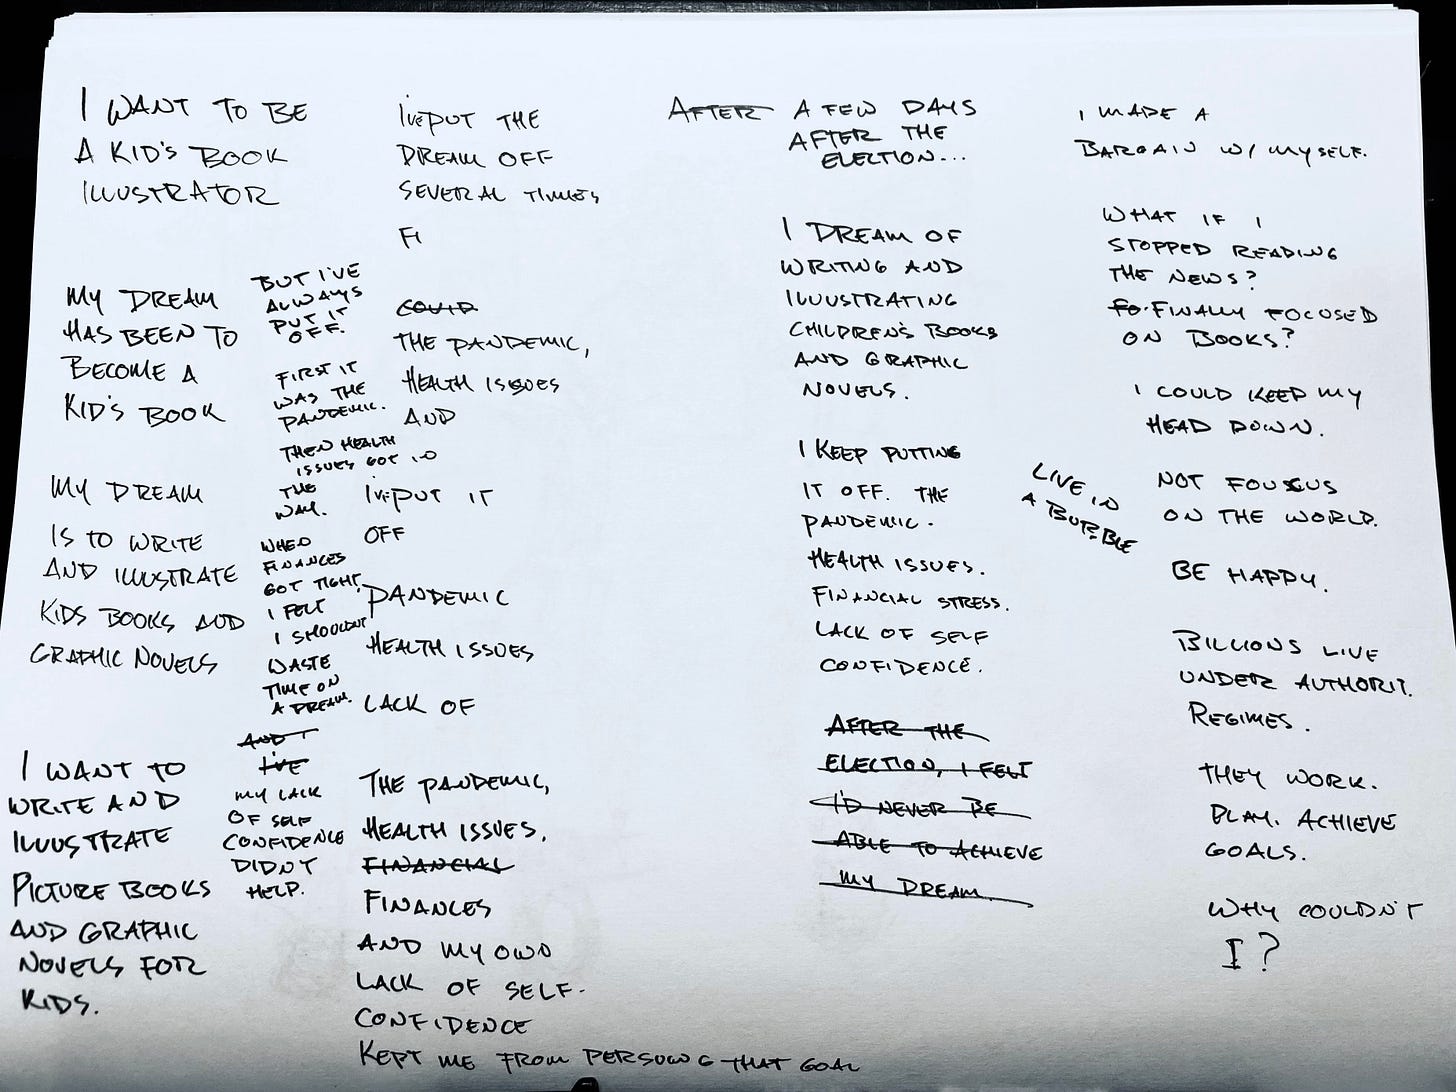 I WANT TO BE
A KID'S BOOK
ILLUSTRATOR
MY DREAM
HAS BEEN TO
BECOME A
KID'S BOOK
MY DREAM
IS TO WRITE
AND ILLUSTRATE
KIDS BOOKS AND
GRAPHIC NOVELS
I WANT TO
WRITE AND
ILLUSTRATE
PICTURE BOOKS
AND GRAPHIC
NOVELS FOR
KIDS.
BUT I'VE
ALWAYS
PUT IT
OFF.
FIRST IT
WAS THE
PANDEMIC.
THEN HEALTH
ISSUES GOT IN
THE
WAY.
WHEN
FINANCES
GOT TIGHT,
I FELT
I SHOULDN'T
WASTE
TIME ON
A DREAM.
AND I
I'VE
MY LACK
OF SELF
CONFIDENCE
DIDN'T
HELP.
I'VE PUT THE
DREAM OFF
SEVERAL TIMES
FI
COVID
THE PANDEMIC,
HEALTH ISSUES
AND
I'VE PUT IT
OFF
PANDEMIC
HEALTH ISSUES
LACK OF
THE PANDEMIC,
HEALTH ISSUES,
FINANCIAL
FINANCES
AND MY OWN
LACK OF SELF-
CONFIDENCE
KEPT ME FROM PERSUING THAT GOAL
AFTER A FEW DAYS
AFTER THE
ELECTION...
I DREAM OF
WRITING AND
ILLUSTRATING
CHILDREN'S BOOKS
AND GRAPHIC
NOVELS.
I KEEP PUTTING
IT OFF. THE
PANDEMIC.
HEALTH ISSUES.
FINANCIAL STRESS.
LACK OF SELF
CONFIDENCE.
AFTER THE
ELECTION, I FELT
I'D NEVER BE
ABLE TO ACHIEVE
MY DREAM.
I MADE A
BARGAIN W/ MYSELF.
WHAT IF I
STOPPED READING
THE NEWS?
FO. FINALLY FOCUSED
ON BOOKS?
I COULD KEEP MY
HEAD DOWN.
LIVE IN
A BUBBLE
NOT FOUSCUS
ON THE WORLD.
BE HAPPY.
BILLIONS LIVE
UNDER AUTHORIT.
REGIMES.
THEY WORK.
PLAY. ACHIEVE
GOALS.
WHY COULDN'T
I?